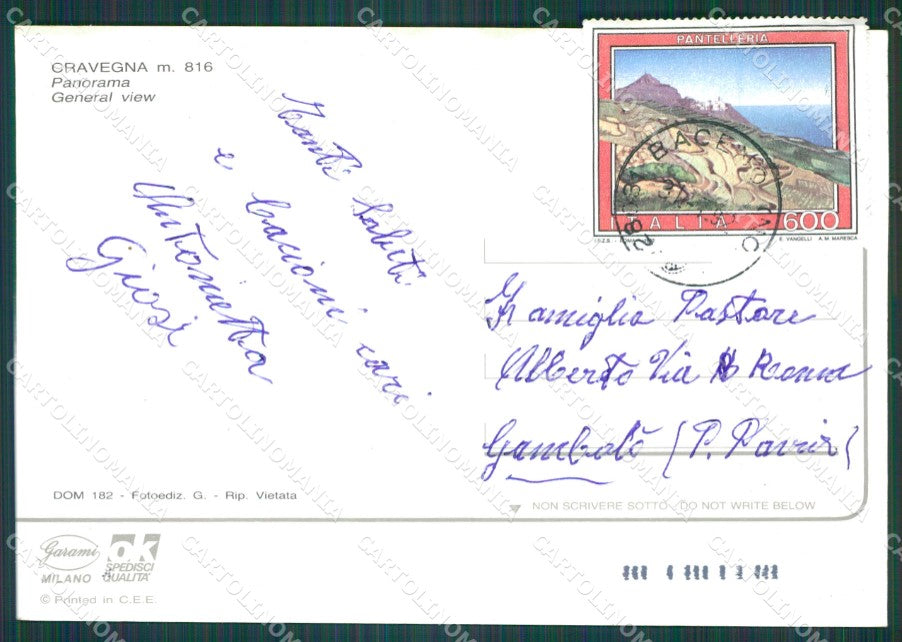 CRAVEGNA m. 816
Panorama
General view
Tanti Saluti
e bacioni cari
Antonietta
Giosi
PANTELLERIA
ITALIA 600
I.P.Z.S. - ROMA
E. VANGELLI A.M. MARESCA
BACENO
Famiglia Pastore
Alberto Via Roma
Gambolò (P. Pavia)
DOM 182 - Fotoediz. G. - Rip. Vietata
NON SCRIVERE SOTTO - DO NOT WRITE BELOW
Garami
MILANO
OK
SPEDISCI
QUALITÀ
© Printed in C.E.E.
CARTOLINOMANIA